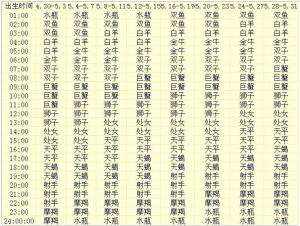 出生时间 4.30-5.3 5.4-5.7 5.8-5.11 5.12-5.15 5.16-5.19 5.20-5.23 5.24-5.27 5.28-5.31
01:00 水瓶 水瓶 双鱼 双鱼 双鱼 双鱼 双鱼 双鱼
02:00 双鱼 双鱼 双鱼 双鱼 双鱼 白羊 白羊 白羊
03:00 双鱼 双鱼 白羊 白羊 白羊 白羊 白羊 金牛
04:00 白羊 白羊 白羊 金牛 金牛 金牛 金牛
05:00 金牛 金牛 金牛 金牛 双子
06:00 金牛 金牛 金牛 双子 双子 双子 双子 双子
07:00 双子 双子 双子 双子 双子 巨蟹 巨蟹
08:00 双子 双子 巨蟹 巨蟹 巨蟹 巨蟹 巨蟹
09:00 巨蟹 巨蟹 巨蟹 巨蟹 巨蟹 巨蟹
10:00 巨蟹 巨蟹 巨蟹 狮子 狮子 狮子 狮子
11:00 巨蟹 狮子 狮子 狮子 狮子 狮子 狮子
12:00 狮子 狮子 狮子 狮子 狮子 处女 处女
13:00 狮子 处女 处女 处女 处女 处女
14:00 处女 处女 处女 处女 处女 天平
15:00 处女 处女 天平 天平 天平 天平
16:00 天平 天平 天平 天平 天平
17:00 天平 天平 天平 天平 天蝎 天蝎
18:00 天蝎 天蝎 天蝎 天蝎 天蝎
19:00 天蝎 天蝎 天蝎 射手 射手
20:00 射手 射手 射手 射手 射手
21:00 射手 射手 射手 射手 摩羯
22:00 射手 摩羯 摩羯 摩羯 摩羯
23:00 摩羯 摩羯 摩羯 摩羯 水瓶
24:00:00 摩羯 摩羯 水瓶 水瓶 水瓶 水瓶